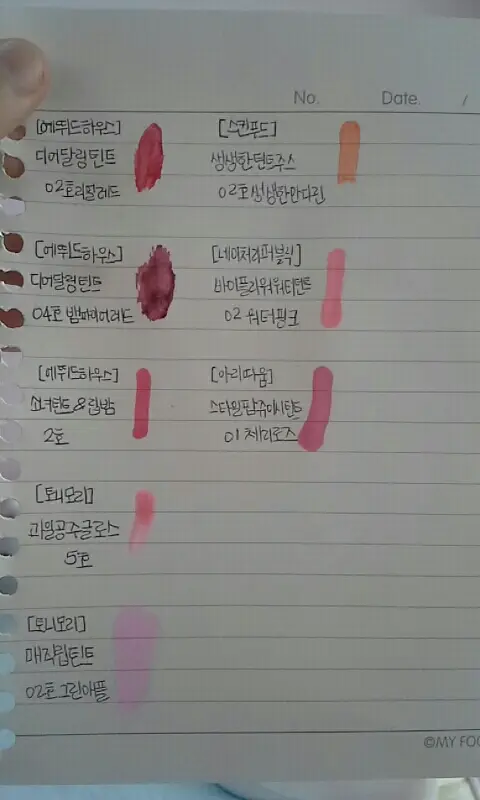 No. Date. /
[에뛰드하우스]
디어달링틴트
02호리얼레드
[스킨푸드]
생생한틴트주스
02호생생한만다린
[에뛰드하우스]
디어달링틴트
04호 뱀파이어레드
[네이처리퍼블릭]
바이플라워워터틴트
02 워터핑크
[에뛰드하우스]
소녀틴트&립밤
2호
[아리따움]
스타일팝쥬이시틴트
01 체리로즈
[토니모리]
과일공주글로스
5호
[토니모리]
매직립틴트
02호그린애플
©MY FOO